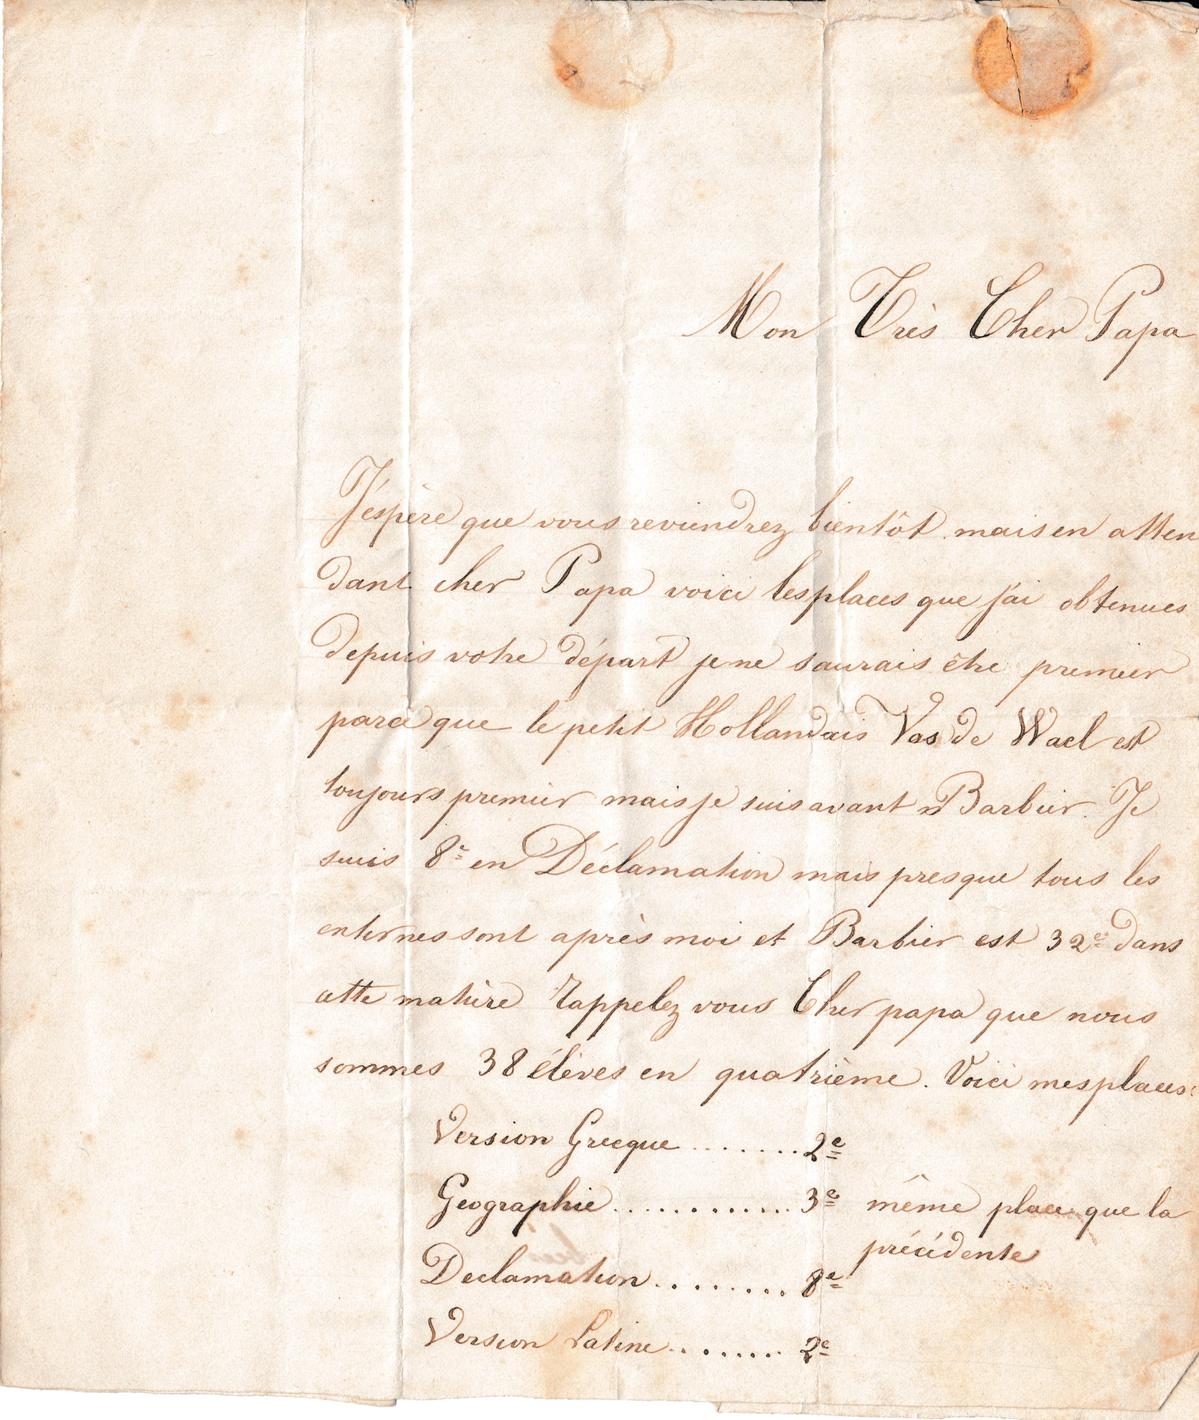 Mon Très Cher Papa
J'éspère que vous reviendrez bientôt mais en atten
dant cher Papa voici les places que j'ai obtenues
depuis votre départ je ne saurais être premier
parce que le petit Hollandais Vas de Wael est
toujours premier mais je suis avant Barbier. Je
suis 8e en Déclamation mais presque tous les
externes sont après moi et Barbier est 32e dans
cette matière rappelez vous Cher papa que nous
sommes 38 élèves en quatrième. Voici mes places:
Version Grecque ....... 2e
Geographie ............. 3e même place que la
précédente
Declamation ......... 8e
Version Latine ........ 2e